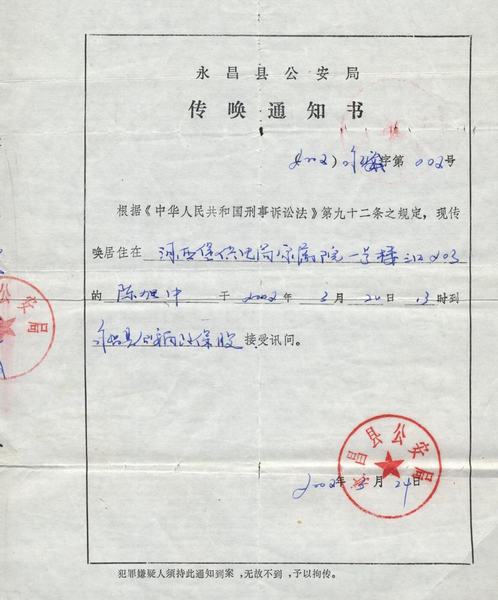 永昌县公安局
传唤通知书
(2002) 字第 002 号
根据《中华人民共和国刑事诉讼法》第九十二条之规定，现传
唤居住在 河西堡供电局家属院一号楼三口203
的 陈 中 于 2002 年 3 月 24 日 13 时到
永昌县公安局 保股 接受讯问。
昌县公安局
2002 年 3 月 24 日
犯罪嫌疑人须持此通知到案，无故不到，予以拘传。
县公安局